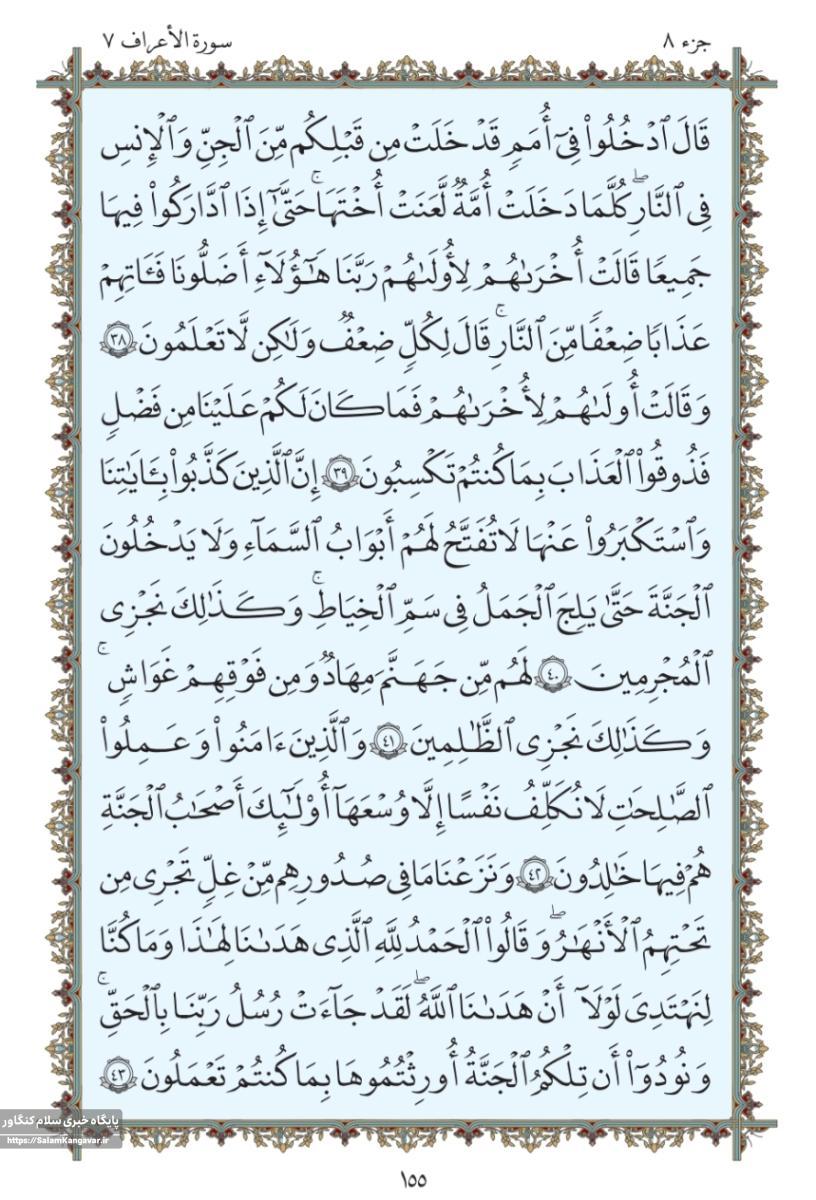 جزء ٨
سورة الأعراف ٧
قَالَ ٱدۡخُلُواْ فِيٓ أُمَمٖ قَدۡ خَلَتۡ مِن قَبۡلِكُم مِّنَ ٱلۡجِنِّ وَٱلۡإِنسِ
فِي ٱلنَّارِۖ كُلَّمَا دَخَلَتۡ أُمَّةٞ لَّعَنَتۡ أُخۡتَهَاۚ حَتَّىٰٓ إِذَا ٱدَّارَكُواْ فِيهَا
جَمِيعٗا قَالَتۡ أُخۡرَىٰهُمۡ لِأُولَىٰهُمۡ رَبَّنَا هَٰٓؤُلَآءِ أَضَلُّونَا فَـَٔاتِهِمۡ
عَذَابٗا ضِعۡفٗا مِّنَ ٱلنَّارِۚ قَالَ لِكُلّٖ ضِعۡفٞ وَلَٰكِن لَّا تَعۡلَمُونَ ٣٨
وَقَالَتۡ أُولَىٰهُمۡ لِأُخۡرَىٰهُمۡ فَمَا كَانَ لَكُمۡ عَلَيۡنَا مِن فَضۡلٖ
فَذُوقُواْ ٱلۡعَذَابَ بِمَا كُنتُمۡ تَكۡسِبُونَ ٣٩ إِنَّ ٱلَّذِينَ كَذَّبُواْ بِـَٔايَٰتِنَا
وَٱسۡتَكۡبَرُواْ عَنۡهَا لَا تُفَتَّحُ لَهُمۡ أَبۡوَٰبُ ٱلسَّمَآءِ وَلَا يَدۡخُلُونَ
ٱلۡجَنَّةَ حَتَّىٰ يَلِجَ ٱلۡجَمَلُ فِي سَمِّ ٱلۡخِيَاطِۚ وَكَذَٰلِكَ نَجۡزِي
ٱلۡمُجۡرِمِينَ ٤٠ لَهُم مِّن جَهَنَّمَ مِهَادٞ وَمِن فَوۡقِهِمۡ غَوَاشٖۚ
وَكَذَٰلِكَ نَجۡزِي ٱلظَّٰلِمِينَ ٤١ وَٱلَّذِينَ ءَامَنُواْ وَعَمِلُواْ
ٱلصَّٰلِحَٰتِ لَا نُكَلِّفُ نَفۡسًا إِلَّا وُسۡعَهَآ أُوْلَٰٓئِكَ أَصۡحَٰبُ ٱلۡجَنَّةِ
هُمۡ فِيهَا خَٰلِدُونَ ٤٢ وَنَزَعۡنَا مَا فِي صُدُورِهِم مِّنۡ غِلّٖ تَجۡرِي مِن
تَحۡتِهِمُ ٱلۡأَنۡهَٰرُۖ وَقَالُواْ ٱلۡحَمۡدُ لِلَّهِ ٱلَّذِي هَدَىٰنَا لِهَٰذَا وَمَا كُنَّا
لِنَهۡتَدِيَ لَوۡلَآ أَنۡ هَدَىٰنَا ٱللَّهُۖ لَقَدۡ جَآءَتۡ رُسُلُ رَبِّنَا بِٱلۡحَقِّۚ
وَنُودُوٓاْ أَن تِلۡكُمُ ٱلۡجَنَّةُ أُورِثۡتُمُوهَا بِمَا كُنتُمۡ تَعۡمَلُونَ ٤٣
پایگاه خبری سلام کنگاور
https://SalamKangavar.ir
١٥٥